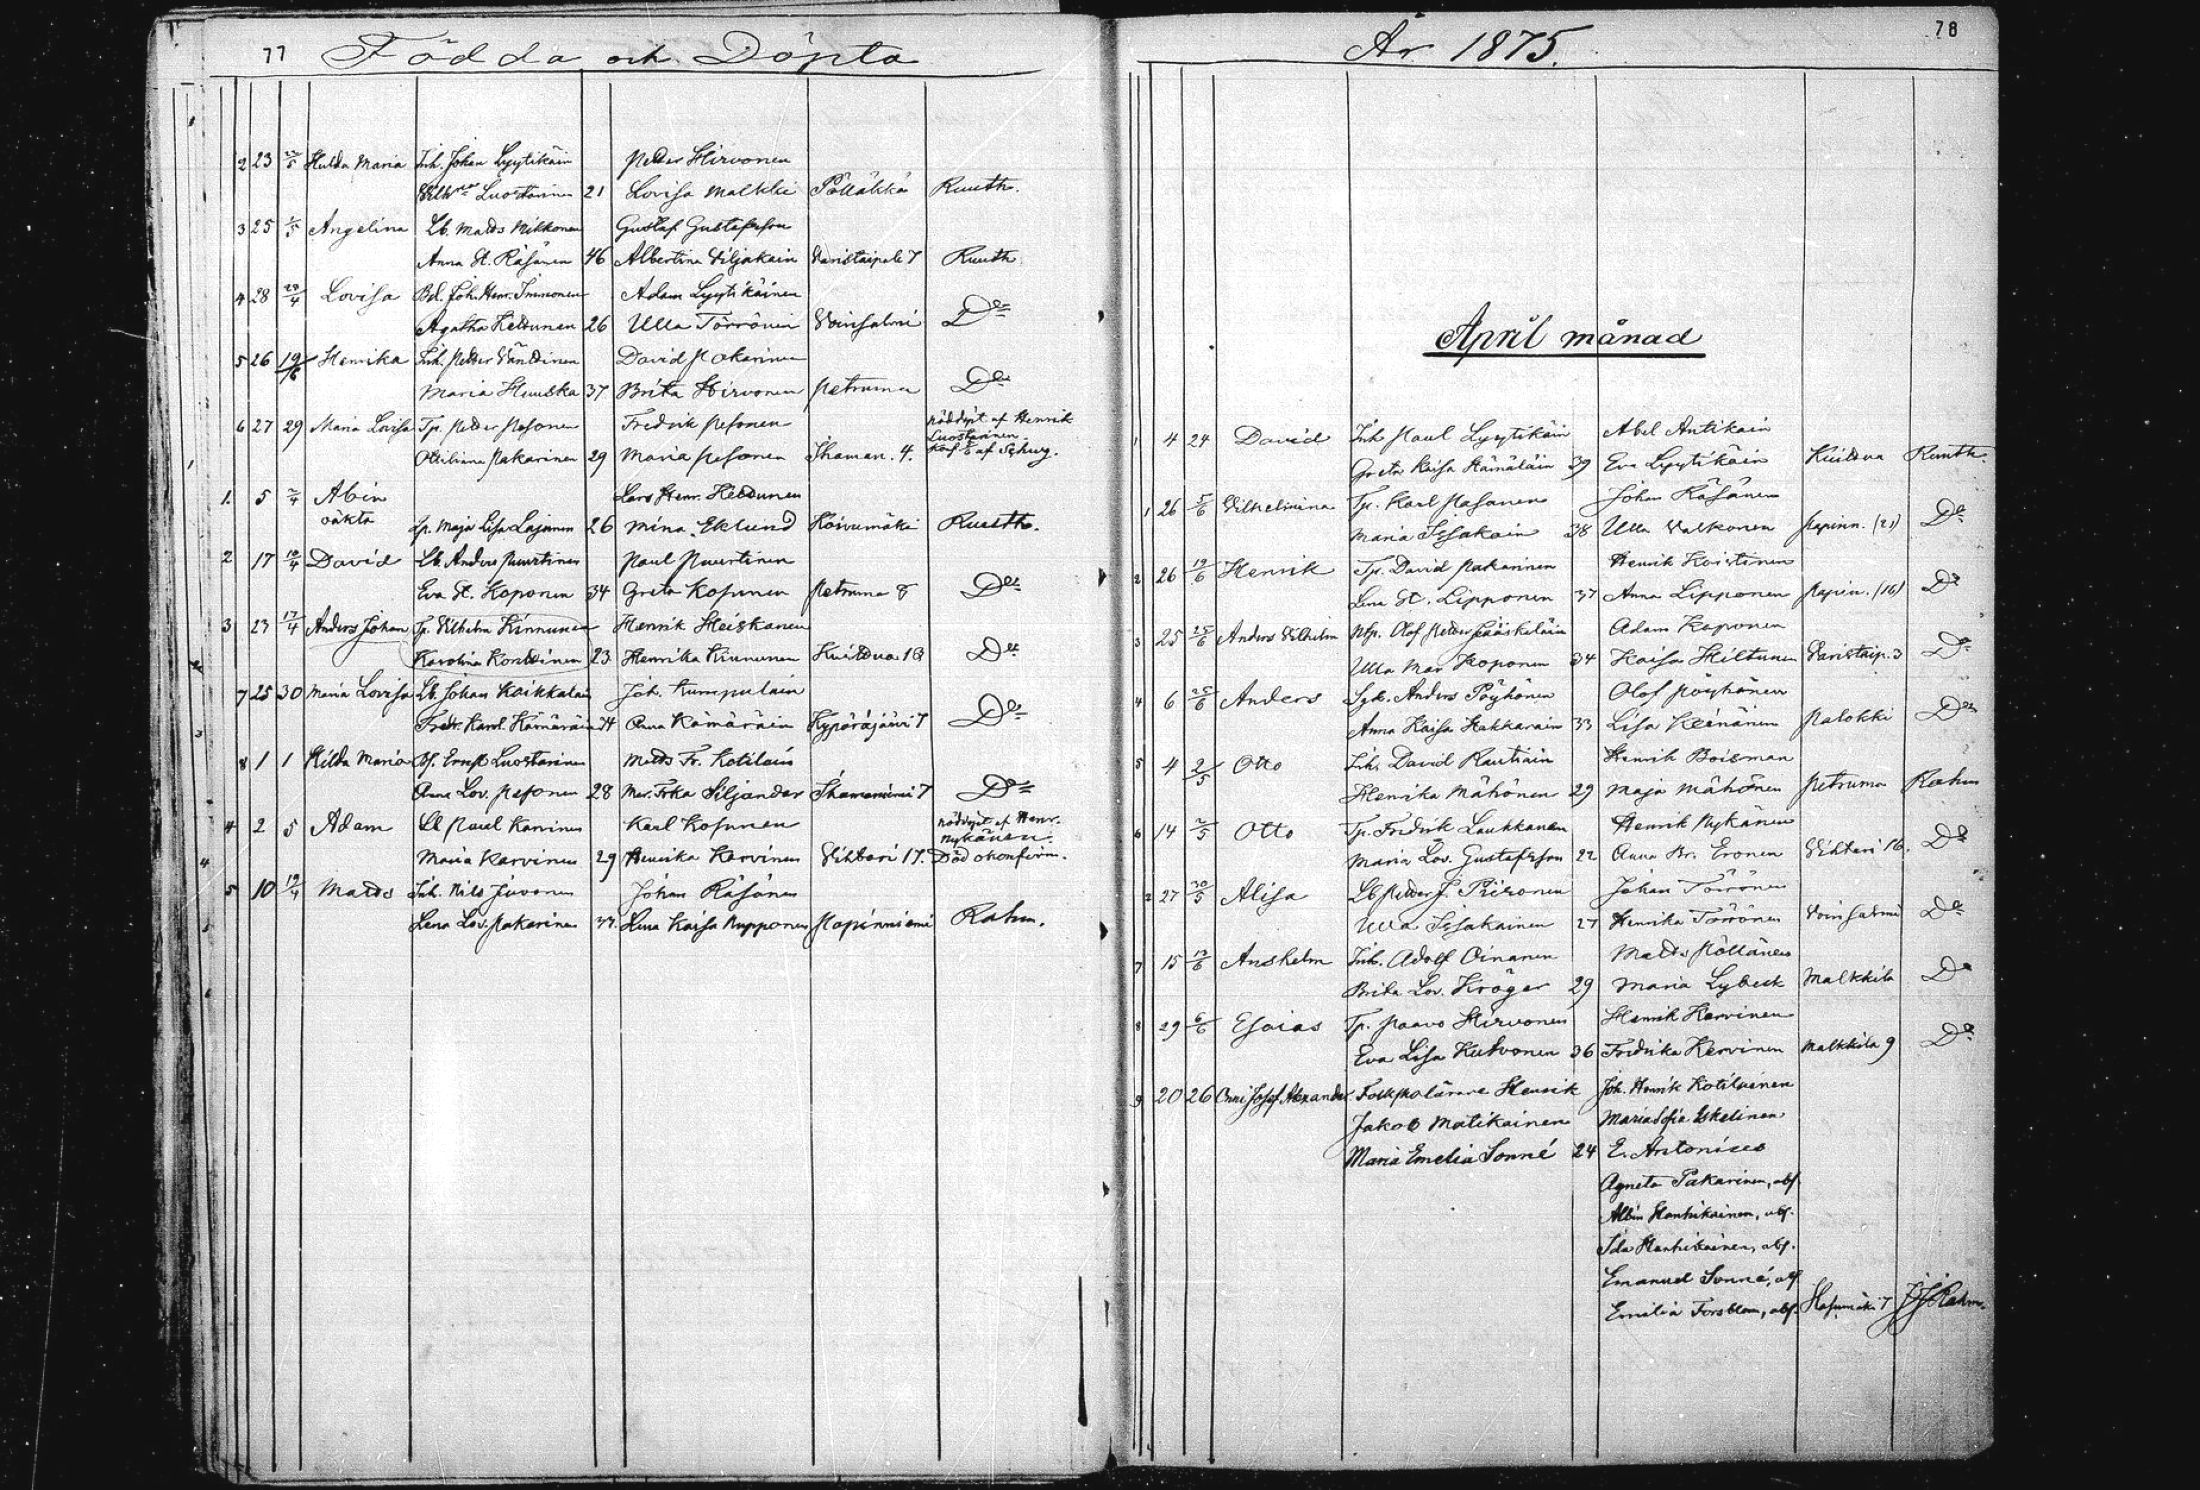 77 Födda och Döpta
2 23 Hulda Maria Inh. Johan Lyytikäin Petter Hirvonen
Luostarinen 21 Lovisa Malkki Pölläkkä Ruuth.
3 25 Angelina Lb. Matts Mikkonen Gustaf Gustafsson
Anna St. Räsänen 46 Albertina Siljakain Varistaipale 7 Ruuth
4 28 29/4 Lovisa Bd. Joh. Henr. Immonen Adam Lyytikäinen
Agatha Keltunen 26 Ulla Törrönen Voinsalmi Do
5 26 19/6 Henrika Inh. Petter Väntinen David Pakarinen
Maria Huuska 37 Brita Hirvonen Petruma Do
6 27 29 Maria Lovisa Tp. Petter Pesonen Fredrik Pesonen nöddöpt af Henrik
Luostarinen.
Pakarinen 29 Maria Pesonen Ihaman. 4. af Schwg.
1. 5 Lars Henr. Hiltunen
oäkta Lp. Maja Lisa Lajunen 26 Mina Eklund Koivumäki Ruuth.
2 17 18/4 David Lb. Anders Puurtinen Paul Puurtinen
Eva St. Koponen 34 Greta Kosunen Petruma 8 Do
3 27 17/4 Anders Johan Tp. Vilhelm Kinnunen Henrik Heiskanen
Karolina Konttinen 23 Henrika Kinnunen Kuittua 18 Do
7 25 30 Maria Lovisa Lb. Johan Kaikkalain Joh. Kumpulain
Fredr. Karol. Hämäräin 24 Anna Hämäräin Kypäräjärvi 7 Do
8 1 1 Hilda Maria Ernst Luostarinen Matts Fr. Kotilain
Anna Lov. Pesonen 28 Siljander Ihamaniemi 7 Do
4 2 5 Adam Lb Paul Karvinen Karl Kosunen nöddöpt af Henr.
Nykänen.
Maria Karvinen 29 Henrika Karvinen Vihtari 17. Död okonfirm.
5 10 19/4 Matts Inh. Nils Juvonen Johan Räsänen
Lena Lov. Pakarinen 37 Lena Kaisa Rupponen Papinniemi Rahm.
År 1875. 78
April månad
1 4 24 David Inh Paul Lyytikäin Abel Antikain
Greta Kaisa Hämäläin 39 Eva Lyytikäin Kuittua Ruuth.
1 26 5/6 Vilhelmina Tp. Karl Pasanen Johan Räsänen
Maria Issakain 38 Ulla Valkonen Papinn. (21) Do
2 26 19/6 Henrik Tp. David Pakarinen Henrik Koistinen
Lena St. Lipponen 37 Anna Lipponen Papin. (16) Do
3 25 25/6 Anders Vilhelm Olof Petter Jääskeläin Adam Koponen
Ulla Mar. Koponen 34 Kaisa Hiltunen Varistaip. 3 Do
4 6 25/6 Anders Sytn. Anders Pöyhönen Olof Pöyhönen
Anna Kaisa Hakkarain 33 Lisa Keinänen Palokki Do
5 4 2/5 Otto Inh. David Rautiain Henrik Boisman
Henrika Mähönen 29 Maja Mähönen Petruma Rahm
6 14 2/5 Otto Tp. Fredrik Laukkanen Henrik Nykänen
Maria Lov. Gustafsson 22 Anna Br. Eronen Vihtari 16. Do
2 27 30/5 Alisa Lb Petter J. Piironen Johan Törrönen
Ulla Issakainen 27 Henrika Törrönen Voinsalmi Do
7 15 13/6 Anshelm Inh. Adolf Oinonen Matts Pöllänen
Brita Lov. Kröger 29 Maria Lybeck Malkkila Do
8 29 6/6 Esaias Tp. Paavo Hirvonen Henrik Kervinen
Eva Lisa Kutvonen 36 Fredrika Kervinen Malkkila 9 Do
9 20 26 Onni Josef Alexander Folkskolärare Henrik Joh. Henrik Kotilainen
Jakob Matikainen Maria Sofia Eskelinen
Maria Emelia Sonné 24 E. Antonises
Agneta Pakarinen, abs.
Albin Hanhikainen, abs.
Ida Hanhikainen, abs.
Emanuel Sonné, abs.
Emilia Forsblom, abs. Hasumäki 7 J. J. Rahm.